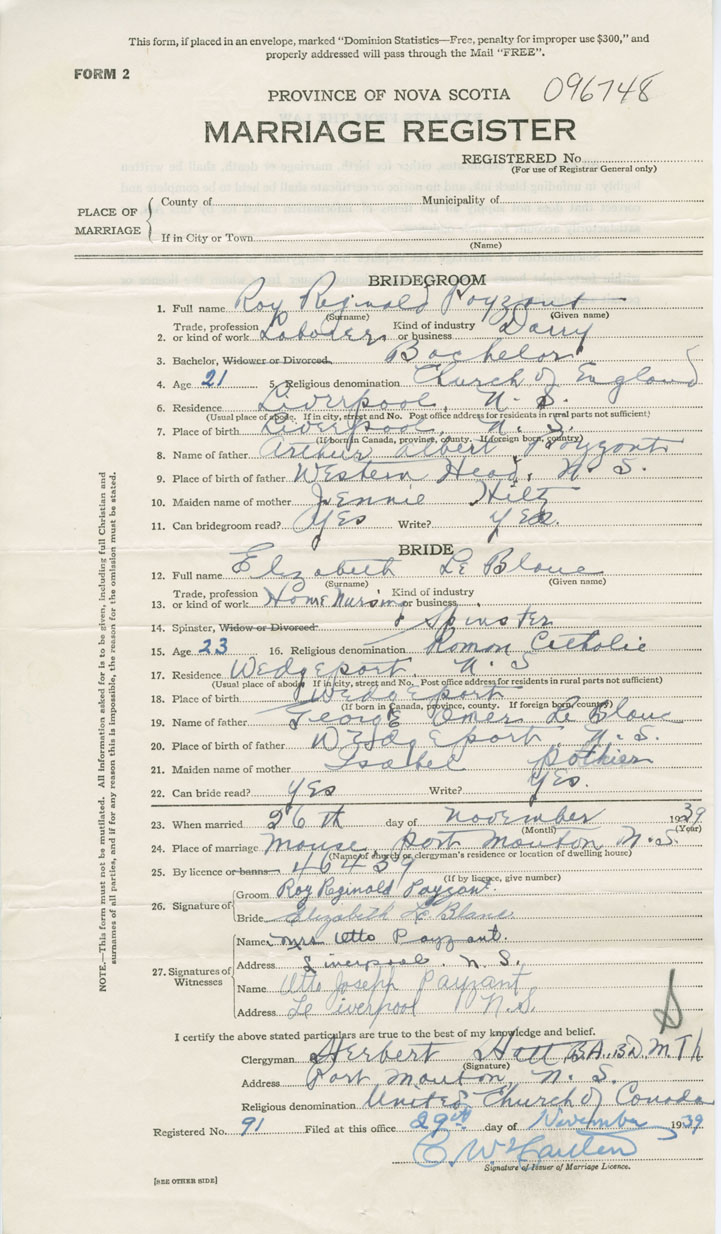 This form, if placed in an envelope, marked "Dominion Statistics—Free, penalty for improper use $300," and
properly addressed will pass through the Mail "FREE".
FORM 2
PROVINCE OF NOVA SCOTIA 096748
MARRIAGE REGISTER
REGISTERED No.
(For use of Registrar General only)
PLACE OF MARRIAGE
County of Municipality of
If in City or Town
(Name)
BRIDEGROOM
1. Full name Roy Reginald Payzant
(Surname) (Given name)
2. Trade, profession or kind of work Laborer Kind of industry or business Dairy
3. Bachelor, Widower or Divorced Bachelor
4. Age 21 5. Religious denomination Church of England
6. Residence Liverpool N. S.
(Usual place of abode. If in city, street and No. Post office address for residents in rural parts not sufficient)
7. Place of birth Liverpool, N. S.
(If born in Canada, province, county. If foreign born, country)
8. Name of father Arthur Albert Payzant
9. Place of birth of father Western Head, N. S.
10. Maiden name of mother Jennie Hiltz
11. Can bridegroom read? Yes Write? Yes.
BRIDE
12. Full name Elizabeth Le Blanc
(Surname) (Given name)
13. Trade, profession or kind of work Home Nursing Kind of industry or business
14. Spinster, Widow or Divorced Spinster
15. Age 23 16. Religious denomination Roman Catholic
17. Residence Wedgeport, N. S
(Usual place of abode. If in city, street and No. Post office address for residents in rural parts not sufficient)
18. Place of birth Wedgeport
(If born in Canada, province, county. If foreign born, country)
19. Name of father George Omer Le Blanc
20. Place of birth of father Wedgeport, N. S.
21. Maiden name of mother Isabel Pothier
22. Can bride read? Yes Write? Yes.
23. When married 26th day of November 1939
(Month) (Year)
24. Place of marriage Manse, Port Mouton N. S.
(Name of church or clergyman's residence or location of dwelling house)
25. By licence or banns 46459
(If by licence, give number)
26. Signature of
Groom Roy Reginald Payzant.
Bride Elizabeth Le Blanc
27. Signatures of Witnesses
Name Mrs Otto Payzant.
Address Liverpool. N. S.
Name Otto Joseph Payzant
Address Liverpool N.S.
I certify the above stated particulars are true to the best of my knowledge and belief.
Clergyman Herbert Hatt B.A., B.D. M. Th
(Signature)
Address Port Mouton, N. S.
Religious denomination United Church of Canada
Registered No. 91 Filed at this office 29th day of November 1939
Signature of Issuer of Marriage Licence.
[SEE OTHER SIDE]
NOTE.—This form must not be mutilated. All information asked for is to be given, including full Christian and
surnames of all parties, and if for any reason this is impossible, the reason for the omission must be stated.